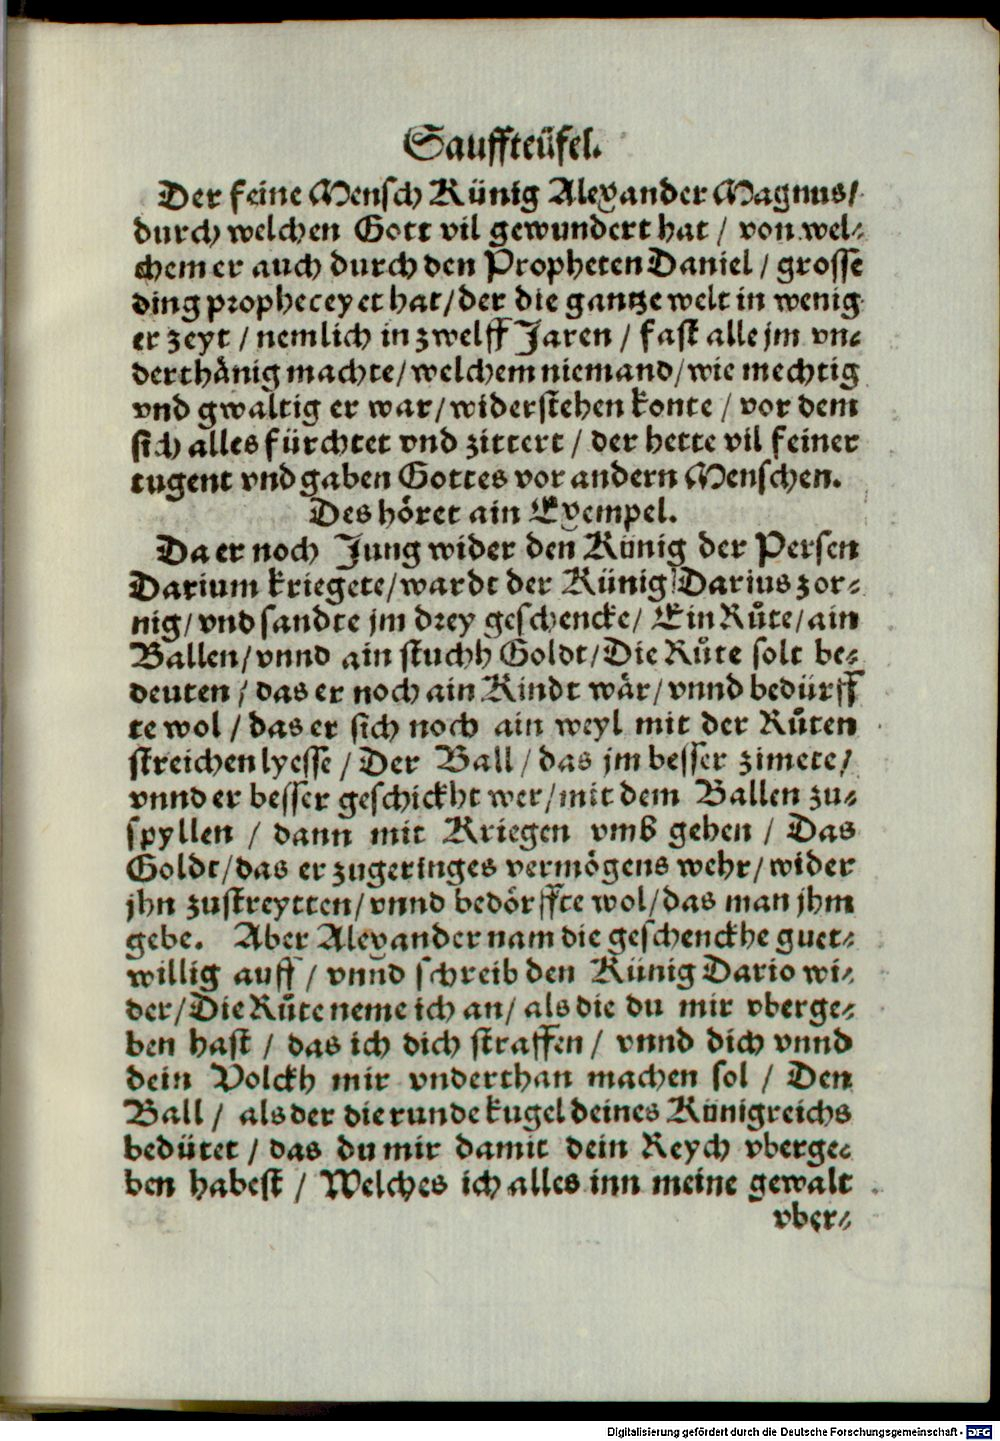 Sauffteüfel.
Der feine Mensch Künig Alexander Magnus/
durch welchen Gott vil gewundert hat / von wel-
chem er auch durch den Propheten Daniel / grosse
ding propheceyet hat / der die gantze welt in wenig
er zeyt / nemlich in zwelff Jaren / fast alle jm vn-
derthänig machte / welchem niemand / wie mechtig
vnd gwaltig er war / widerstehen konte / vor dem
sich alles fürchtet vnd zittert / der hette vil feiner
tugent vnd gaben Gottes vor andern Menschen.
Des höret ain Exempel.
Da er noch Jung wider den Künig der Persen
Darium kriegete / wardt der Künig Darius zor-
nig / vnd sandte jm drey geschencke / Ein Růte / ain
Ballen / vnnd ain stuchh Goldt / Die Růte solt be-
deuten / das er noch ain Kindt wär / vnnd bedürff
te wol / das er sich noch ain weyl mit der Růten
streichen lyesse / Der Ball / das jm besser zimete /
vnnd er besser geschickht wer / mit dem Ballen zu-
spyllen / dann mit Kriegen vmb gehen / Das
Goldt / das er zugeringes vermögens wehr / wider
jhn zustreytten / vnnd bedörffte wol / das man jhm
gebe. Aber Alexander nam die geschenckhe guet-
willig auff / vnnd schreib den Künig Dario wi-
der / Die Růte neme ich an / als die du mir vberge-
ben hast / das ich dich straffen / vnnd dich vnnd
dein Volckh mir vnderthan machen sol / Den
Ball / als der die runde kugel deines Künigreichs
bedütet / das du mir damit dein Reych vberge-
ben habest / Welches ich alles inn meine gewalt
vber-
Digitalisierung gefördert durch die Deutsche Forschungsgemeinschaft - DFG